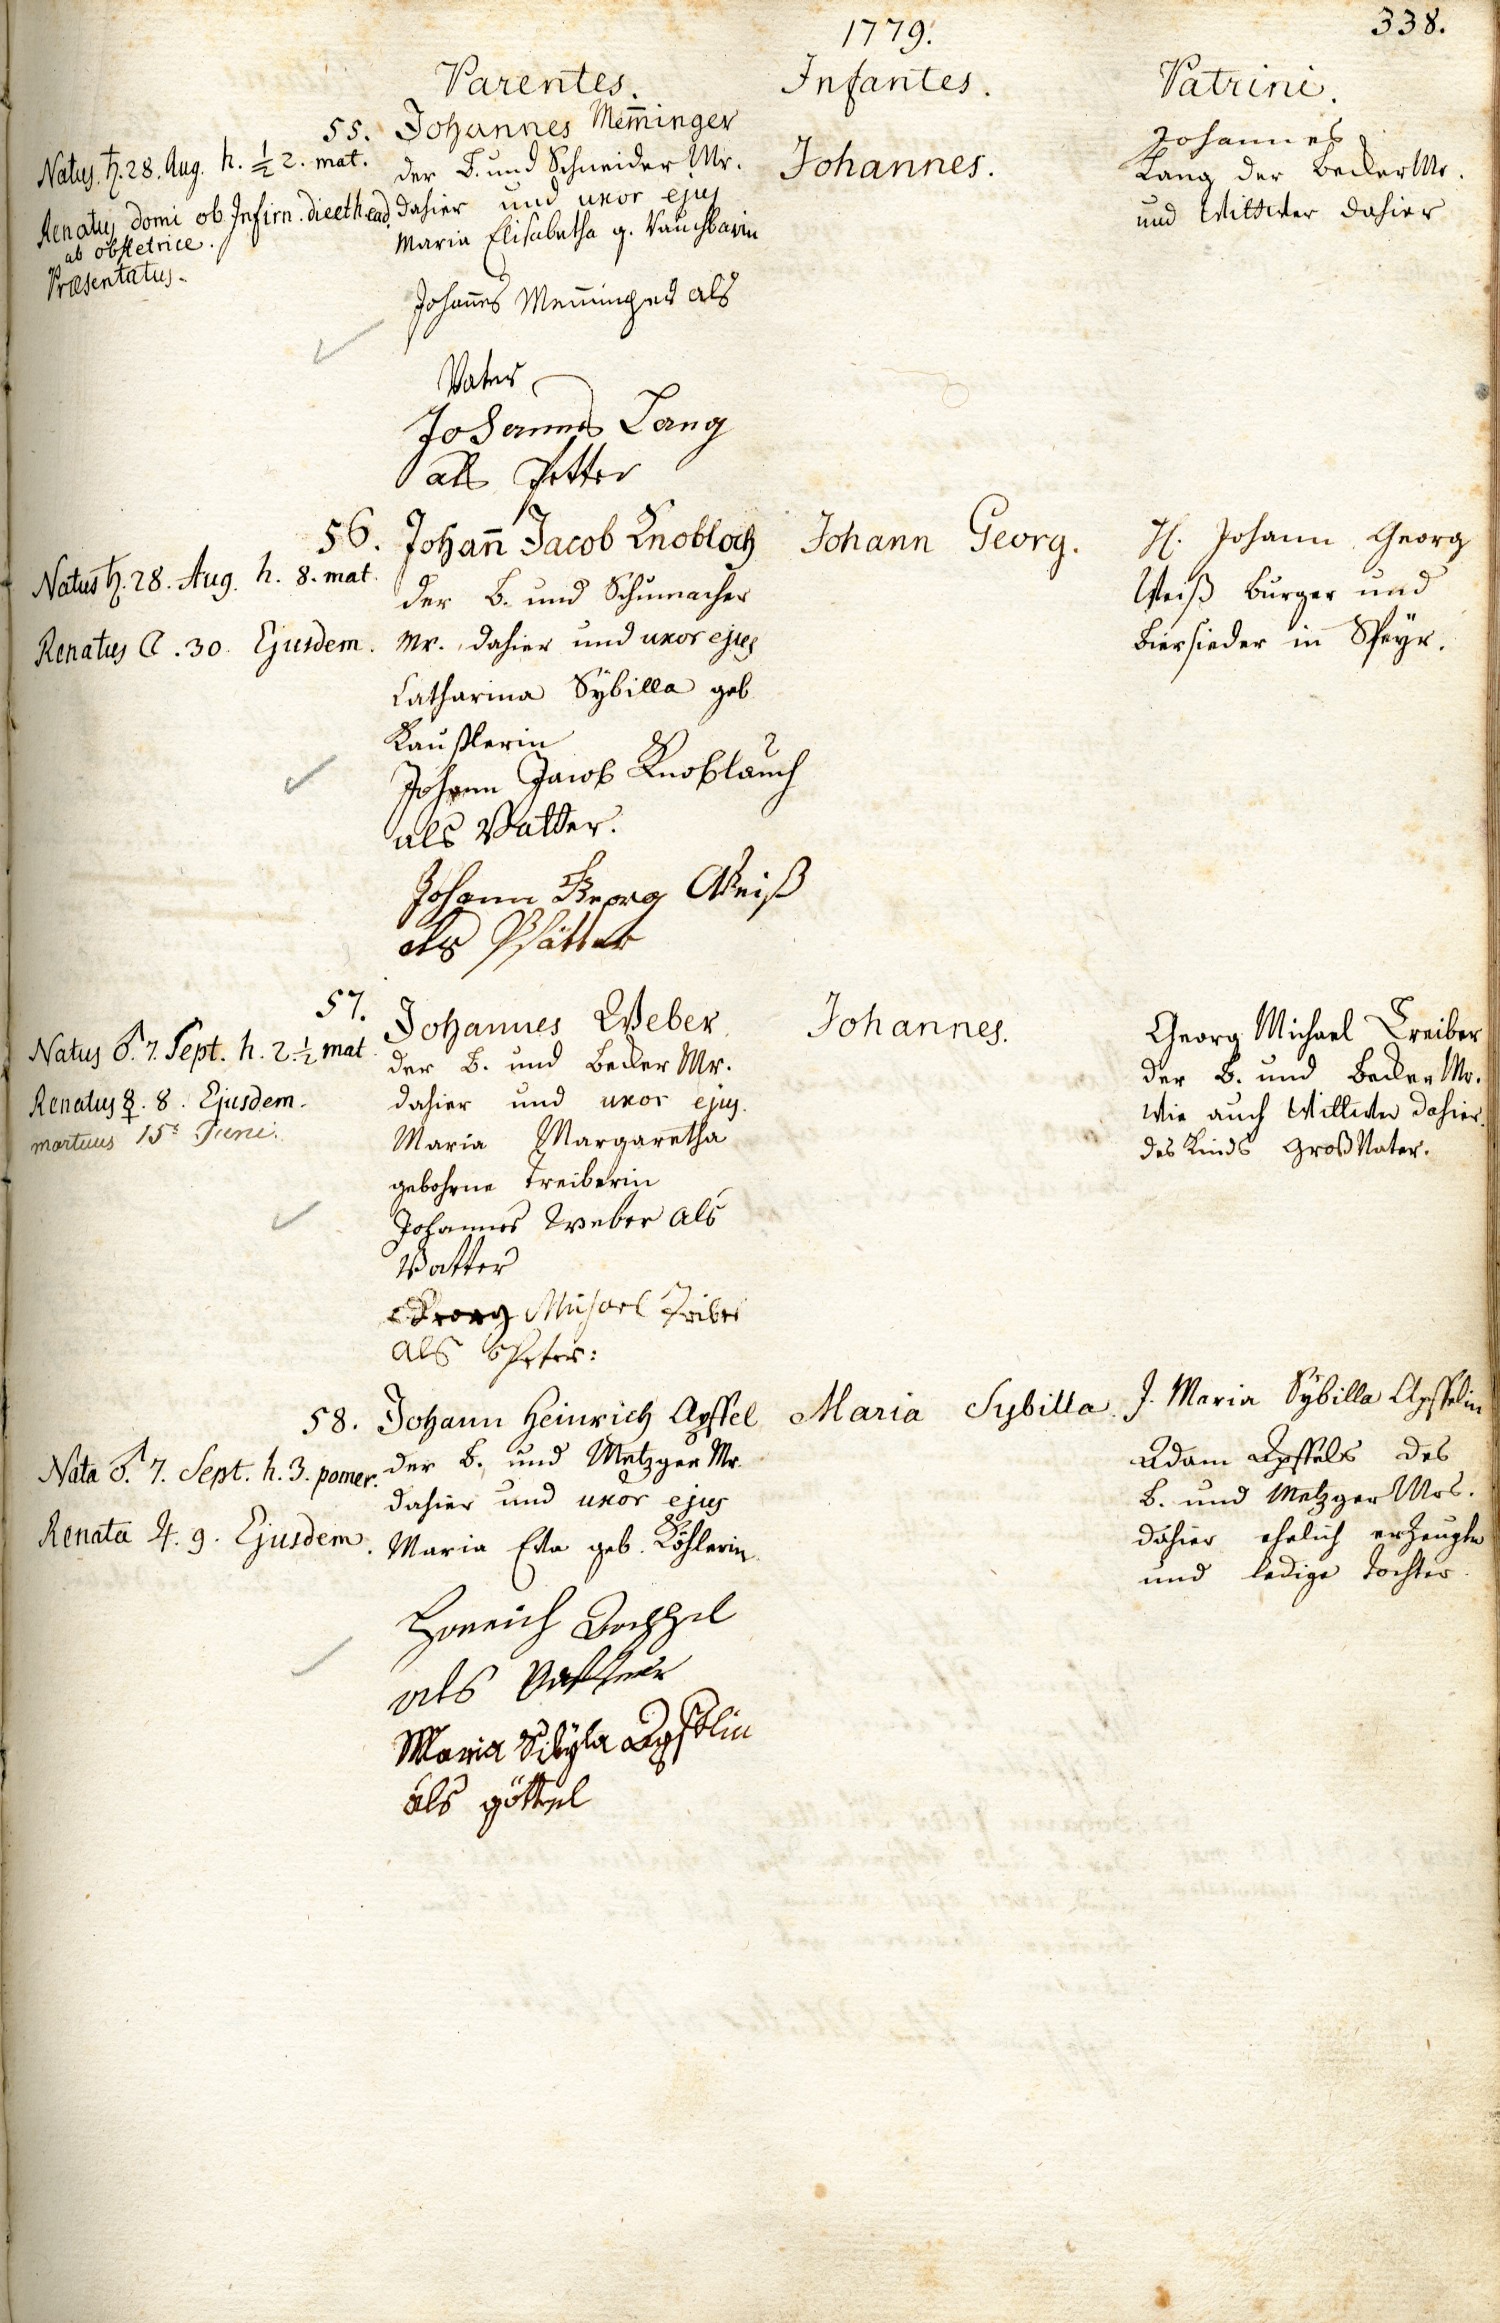 1779.
338.
Parentes.
Infantes.
Patrini.
55.
Natus ♄. 28. Aug. h. ½ 2. mat.
Renatus domi ob Infirm. die eth ead.
ab obstetrice.
Præsentatus.
Johannes Mem̅inger
der B. und Schneider Mr.
dahier und uxor ejus
Maria Elisabetha g.
Johan̅es Mem̅inger als
Vater
Johannes Lang
als Petter
Johannes.
Johannes
Lang der Becker Mr.
und Wittwer dahier
56.
Natus ♄. 28. Aug. h. 8. mat.
Renatus ☾. 30. Ejusdem.
Johan̅ Jacob Knobloch
der B. und Schumacher
Mr. dahier und uxor ejus
Catharina Sÿbilla geb
Kaußlerin
Johann Jacob Knoblauch
als Vatter.
Johann Georg Weiß
als Pfätter
Johann Georg.
H. Johann Georg
Weiß Burger und
Biersieder in Speÿr.
57.
Natus ♂. 7. Sept. h. 2. ½ mat
Renatus ☿. 8. Ejusdem.
mortuus 15t Juni.
Johannes Weber
der B. und Becker Mr.
dahier und uxor ejus.
Maria Margaretha
gebohrne Treiberin
Johannes Weber als
Vatter
Georg Michael Triber
als Peter:
Johannes.
Georg Michael Treiber
der B. und Becker Mr.
wie auch Wittwer dahier.
des Kinds Groß Vater.
58.
Nata ♂. 7. Sept. h. 3. pomer.
Renata ♃. 9. Ejusdem.
Johann Heinrich Apffel
der B. und Metzger Mr.
dahier und uxor ejus
Maria Eva geb. Köhlerin
als Vatter
Maria Sibÿla Apfelin
als göttel
Maria Sybilla.
J. Maria Sÿbilla Apffelin
Adam Apffels des
B. und Metzger Mrs.
dahier ehelich erzeugte
und ledige Tochter.